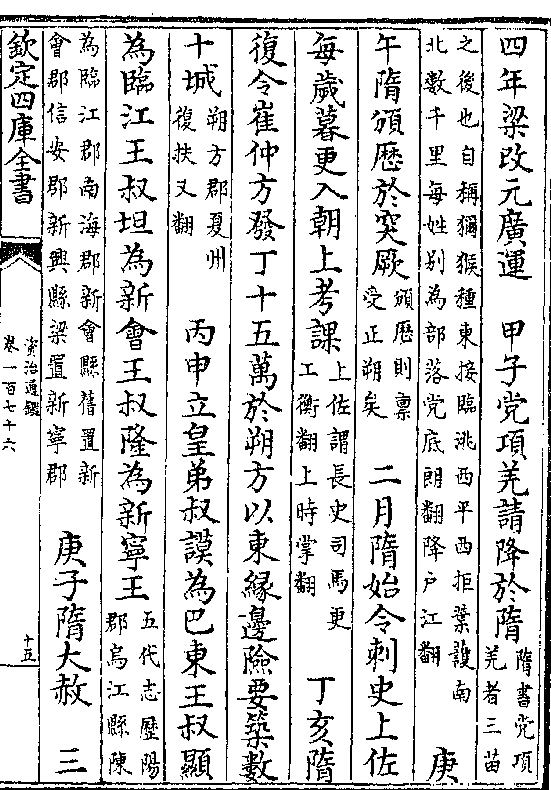 四年梁改元廣運　甲子党項羌請降於隋隋書党項羌者三苗
之後也自稱獼猴種東接臨洮西平西拒葉護南北數千里每姓别為部落党底朗翻降户江翻　庚
午隋頒歷於突厥頒歷則稟受正朔矣　二月隋始令刺史上佐
每歲暮更入朝上考課上佐謂長史司馬更工衡翻上時掌翻　丁亥隋
復令崔仲方發丁十五萬於朔方以東緣邊險要築數
十城朔方郡夏州復扶又翻　丙申立皇弟叔謨為巴東王叔顯
為臨江王叔坦為新會王叔隆為新寧王五代志歷陽郡烏江縣陳
為臨江郡南海郡新會縣舊置新會郡信安郡新興縣梁置新寧郡　庚子隋大赦　三
欽定四庫全書
資治通鑑
卷一百七十六
十五